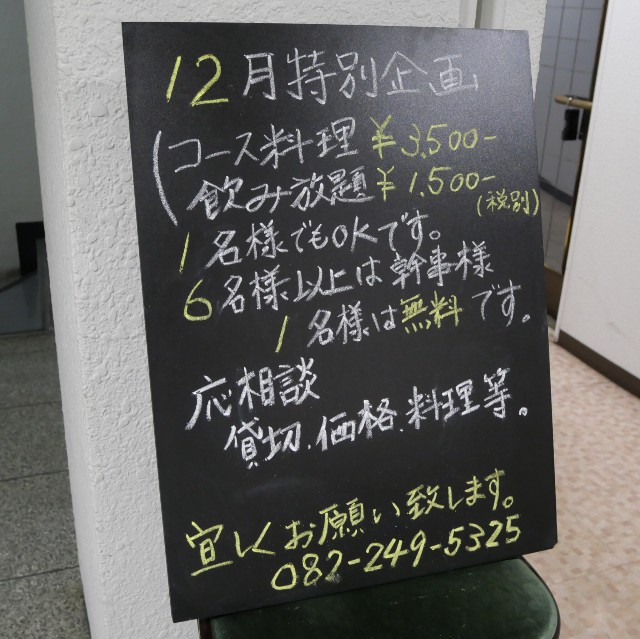 12月特別企画
(コース料理 ¥3,500-
飲み放題 ¥1,500-
(税別)
1名様でもOKです。
6名様以上は幹事様
1名様は無料です。
応相談
貸切、価格、料理等。
宜しくお願い致します。
082-249-5325